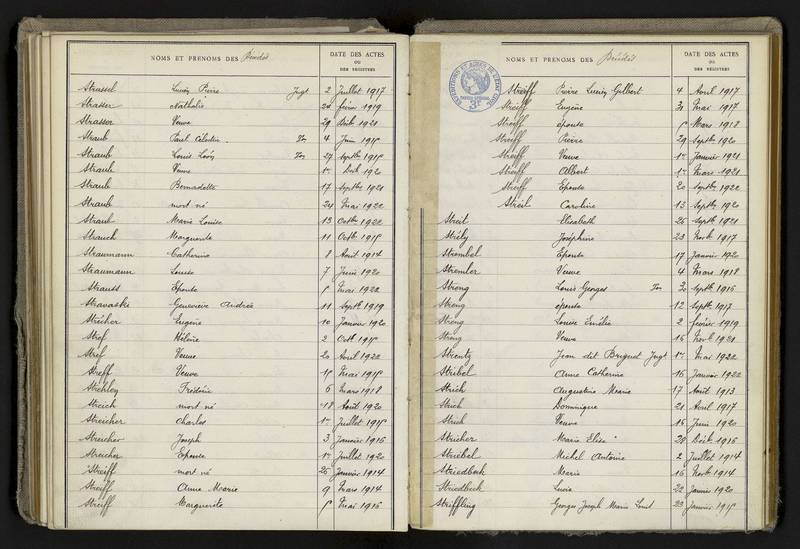 NOMS ET PRENOMS DES Décédés
DATE DES ACTES
OU
DES REGISTRES
Strassel Lucien Pierre Jugt 2 Juillet 1917
Strasser Nathalie 24 février 1919
Strasser Veuve 29 1921
Straub Paul 4 Juin 1915
Straub Louis Léon 27 Septbre 1915
Straub Veuve 1er 1920
Straub Bernadette 17 Septbre 1921
Straub mort né 24 Mai 1922
Straub Marie Louise 13 Octbre 1922
Strauch Marguerite 11 Octbre 1915
Straumann Catherine 8 Août 1914
Straumann Louise 7 Juin 1920
Strauss Epouse 5 Mai 1922
Stravaski Geneviève Andrée 11 Septbre 1919
Strécher Eugène 10 Janvier 1920
Stref Hélène 2 Octbre 1915
Stref Veuve 20 Avril 1922
Streff Veuve 15 Mai 1915
Strehley Frédéric 6 Mars 1918
Streich mort né 18 Août 1920
Streicher Charles 1er Juillet 1915
Streicher Joseph 3 Janvier 1916
Streicher Epouse 1er Juillet 1920
Streiff mort né 26 Janvier 1914
Streiff Anne Marie 9 Mars 1914
Streiff Marguerite 5 Mai 1916
NOMS ET PRENOMS DES Décédés
DATE DES ACTES
OU
DES REGISTRES
Streiff Pierre Lucien Gilbert 4 Avril 1917
Streiff Eugène 31 Mai 1917
Streiff épouse 5 Mars 1918
Streiff Pierre 29 Septbre 1920
Streiff Veuve 1er Janvier 1921
Streiff Albert 1er Mars 1921
Streiff Epouse 20 Septbre 1922
Streil Caroline 13 Septbre 1920
Streit Elisabeth 26 Septbre 1921
Strély Joséphine 23 Novb 1917
Strembel Epouse 17 Janvier 1920
Stremler Veuve 4 Mars 1918
Streng Louis Georges 30 Septbre 1916
Streng épouse 12 Septbre 1917
Streng Louise Emélie 2 février 1919
Streng Veuve 16 Novb 1921
Strentz Jean dit Jugt 1er Mai 1922
Stribel Anne Catherine 16 Janvier 1922
Strich Augustine Marie 17 Août 1913
Strich Dominique 21 Avril 1917
Strich Veuve 16 Juin 1920
Stricher Marie Elise 20 1916
Striebel Michel Antoine 2 Juillet 1914
Striedbeck Marie 16 Novb 1914
Striedbeck Lucie 22 Janvier 1920
Striffling Georges Joseph Marie Louis 23 Janvier 1915